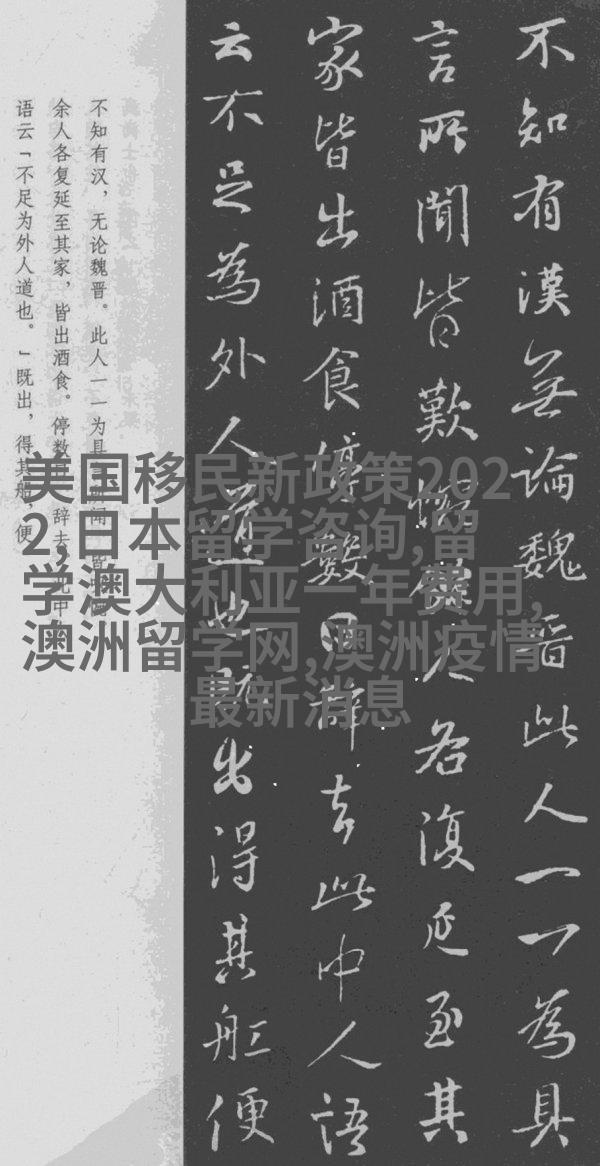 不知有漢無論魏晋此人一一為具
言所聞皆歎惋餘人各復延至其
家皆出酒食停數日辞去此中人語
云不足為外人道也既出得其舡便
不知有汉，无论魏晋。此人一一为具言所闻，皆
余人各复延至其家，皆出酒食。停数日，辞去。此中
语云「不足为外人道也。」既出，得其船，便
美国移民新政策202
2,日本留学咨询,留
学澳大利亚一年费用,
澳洲留学网,澳洲疫情
最新消息